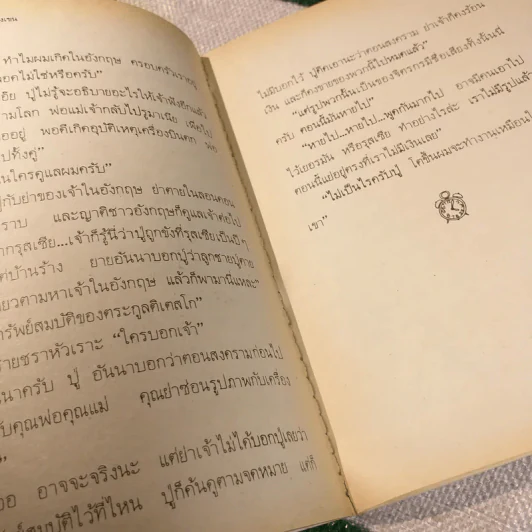 ทำไมผมเกิดในอังกฤษ ครอบครัวเราอยู่
ไม่ใช่หรือครับ"
ปู่ไม่รู้จะอธิบายอะไรให้เจ้าฟังอีกแล้ว
ามโลก พ่อแม่เจ้ากลับไปรูมาเนีย เพื่อไป
อยู่ พอดีเกิดอุบัติเหตุเครื่องบินตก พ่อ
ปทั้งคู่"
นใครดูแลผมครับ"
กับย่าของเจ้าในอังกฤษ ย่าตายในลอนดอน
ราบ และญาติชาวอังกฤษก็ดูแลเจ้าต่อไป
ากรุสเซีย...เจ้าก็รู้นี่ว่าปู่ถูกขังที่รุสเซียเป็นปีๆ
บ้านร้าง ยายอันนาบอกปู่ว่าลูกชายปู่ตาย
ยวตามหาเจ้าในอังกฤษ แล้วก็พามานี่แหละ"
ทรัพย์สมบัติของตระกูลดิเตลโก"
ายชราหัวเราะ "ใครบอกเจ้า"
นาครับ ปู่ อันนาบอกว่าตอนสงครามก่อนไป
บคุณพ่อคุณแม่ คุณย่าซ่อนรูปภาพกับเครื่อง
"
อ อาจจะจริงนะ แต่ย่าเจ้าไม่ได้บอกปู่เลยว่า
สมบัติไว้ที่ไหน ปู่ก็ค้นดูตามจดหมาย แต่ก็
ไม่มีบอกไว้ ปู่คิดเอานะว่าตอนสงคราม ย่าเจ้าก็คงร้อน
เงิน และก็คงขายของพวกนี้ไปหมดแล้ว"
"แต่รูปพวกนั้นเป็นของจิตรกรมีชื่อเสียงทั้งนั้นนี่
ครับ ตอนนี้มันหายไป"
"หายไป...หายไป...พูดกันมากไป อาจมีคนเอาไป
ไว้เยอรมัน หรือรุสเซีย ทำอย่างไรล่ะ เราไม่มีรูปแล้ว
ตอนนี้แย่อยู่ตรงที่เราไม่มีเงินเลย"
"ไม่เป็นไรครับปู่ โตขึ้นผมจะทำงานเหมือนปู่
เขา"